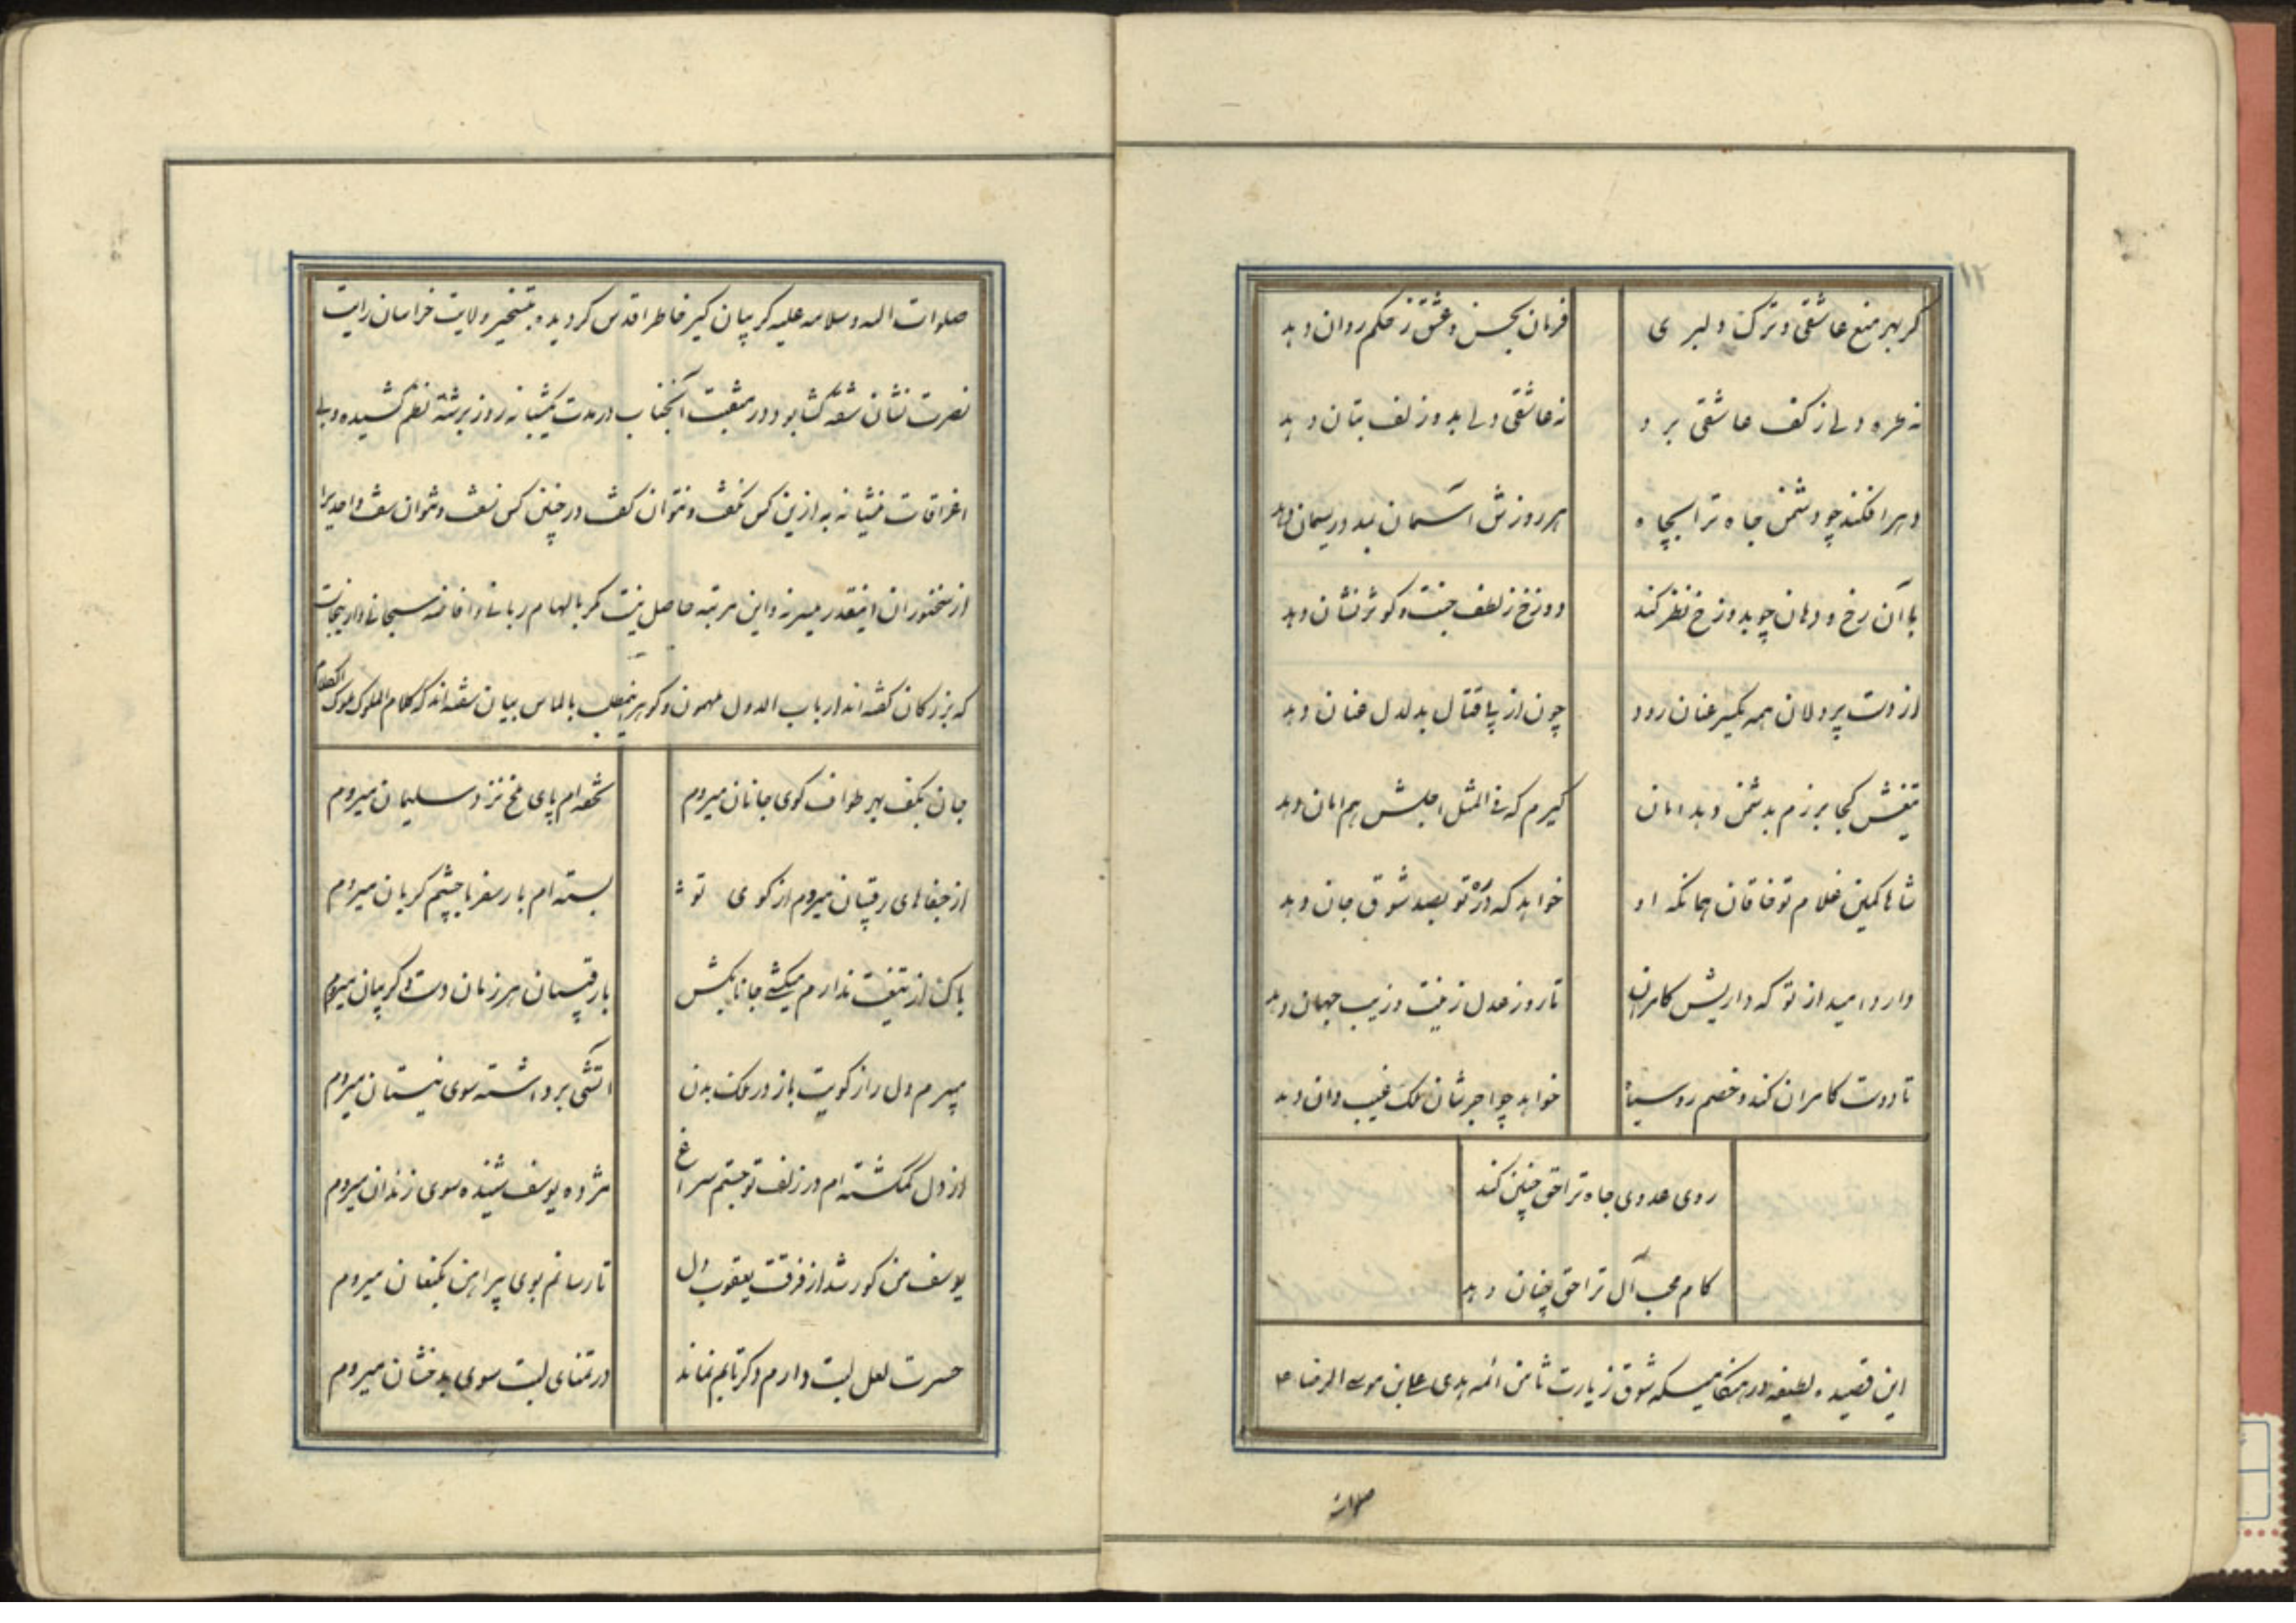 ۱۲
گر بهر منع عاشقی و ترک دلبری
فرمان بحسن و عشق ز حکم روان دهد
نه طره دلی از کف عاشقی برد
نه عاشقی دلی بدو زلف بتان دهد
دهر افکند چو دشمن جاه ترا بچاه
هر روزش آسمان بدو ریسمان دهد
با آن رخ و دهان چو بدوزخ نظر کند
دوزخ ز لطف جنت و کوثر نشان دهد
از دست پردلان همه یکسر عنان رود
چون از پی قتال بدلدل عنان دهد
تیغش کجا برزم بدشمن دهد امان
گیرم که فی المثل اجلش هم امان دهد
شاها کمین غلام تو خاقان همانکه او
خواهد که در ره تو بصد شوق جان دهد
دارد امید از تو که داریش کامران
تا روز عدل زینت و زیب جهان دهد
تا دوست کامران کند و خصم روسیاه
خواهد چو اجرشان ملک غیب دان دهد
روی عدوی جاه ترا حق چنین کند
کام محب آل ترا حق چنان دهد
این قصیده لطیفه در هنگامیکه شوق زیارت ثامن ائمه هدی علی ابن موسی الرضا ع
صلوات
صلوات الله و سلامه علیه گریبان گیر خاطر اقدس گردیده بتسخیر ولایت خراسان رایت
نصرت نشان شقه گشا بود در منقبت آنجناب در مدت یکشبانه روز برشته نظم کشیده و بی
اغراقات منشیانه به ازین کس نگفت و نتوان گفت در چنین کس نسفت و نتوان سفت و احدیرا
از سخنوران اینقدر میسر نه و این مرتبه حاصل نیست مگر بالهام ربانی و افاضه سبحانی و از اینجاست
که بزرگان گفته اند ارباب الدول ملهمون و گوهر اینمطلب بالماس بیان سفته اند که کلام الملوک ملوک الکلام
جان بکف بهر طواف کوی جانان میروم
تحفه ام پای ملخ نزد سلیمان میروم
از جفاهای رقیبان میروم از کوی تو
بسته ام بار سفر با چشم گریان میروم
باک از تیغت ندارم میکشی جانا بکش
با رقیبان هر زمان دست و گریبان میروم
میبرم دل را ز کویت باز در ملک بدن
آتشی برداشته سوی نیستان میروم
از دل گمگشته ام در زلف تو جستم سراغ
مژده یوسف شنیده سوی زندان میروم
یوسف من کور شد از فرقت یعقوب دل
تا رسانم بوی پیراهن بکنعان میروم
حسرت لعل لبت دارم دگر تابم نماند
در تمنای لبت سوی بدخشان میروم